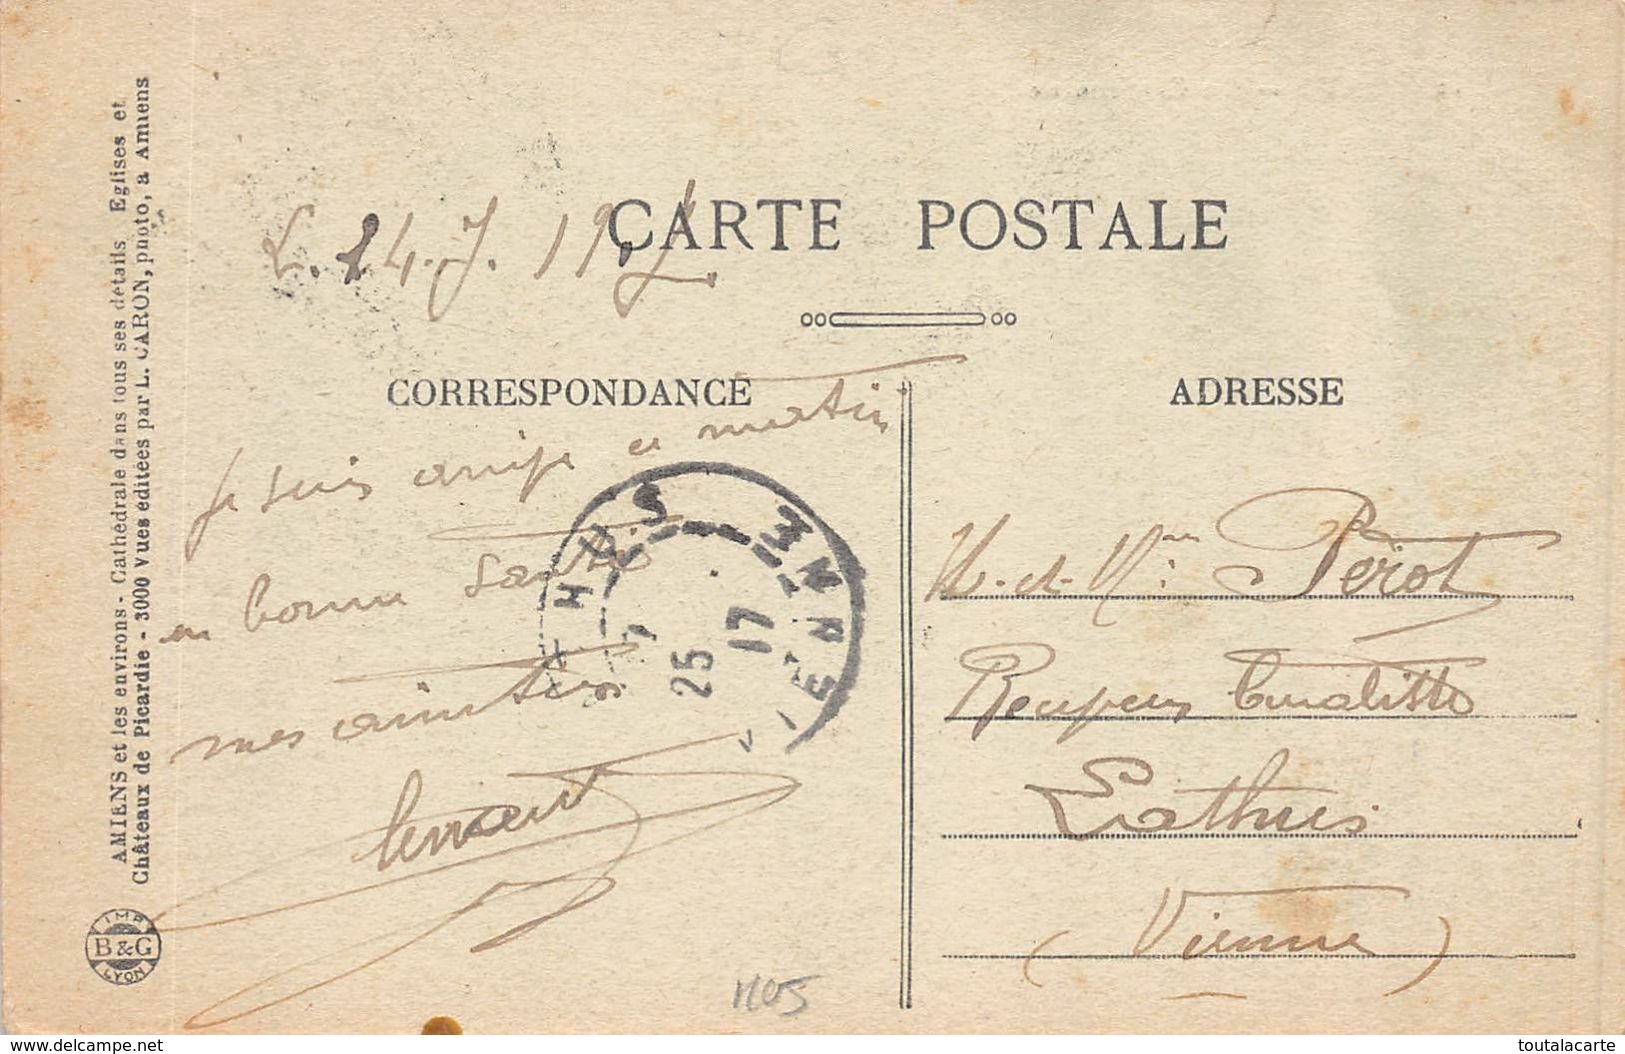 AMIENS et les environs - Cathédrale dans tous ses détails Eglises et
Châteaux de Picardie - 3000 vues éditées par L. CARON, photo, a Amiens
IMP
B&G
LYON
CARTE POSTALE
CORRESPONDANCE
ADRESSE
Je suis arrivé ce matin
en bonne santé
mes amitiés
LATHUS
VIENNE
7
25
17
M. et Mme Pérot
Lathus
(Vienne)
1105
www.delcampe.net
toutalacarte